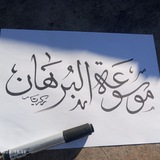 موسوعة البرهان